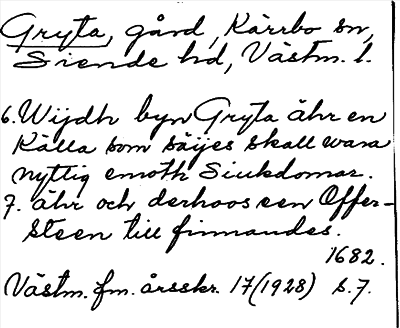 Gryta, gård, Kärrbo sn,
Siende hd, Västm. l.
6. Wijdh byn Gryta ähr en
Källa som säijes skall wara
nyttig emoth Siukdomar.
7. ähr och derhoos een Offer-
steen till finnandes.
1682.
Västm. fm. årsskr. 17 (1928) s. 7.